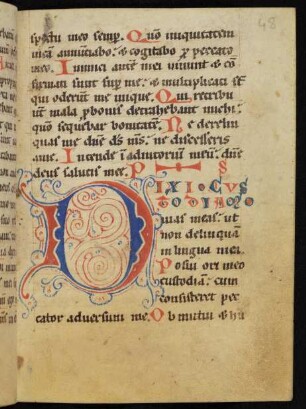 48
spectu meo semp. Quō iniquitatem
meā annuntiabo: & cogitabo p peccato
meo. Inimici autē mei vivunt & cō
firmati sunt sup me: & multiplicati sī
qui oderūt me inique. Qui retribu
unt mala p bonis detrahebant michi:
quō sequebar bonitatē. Ne derelin
quas me dn̄e ds̄ ms̄: ne discesseris
a me. Intende ī adiutoriū meū: dn̄e
deus salutis mee. PS
DIXI CVS
TODIAM
vias meas: ut
non delinquā
in lingua mea.
Posui ori meo
custodiā: cum
consisteret pec
cator adversum me. Obmutui & hu